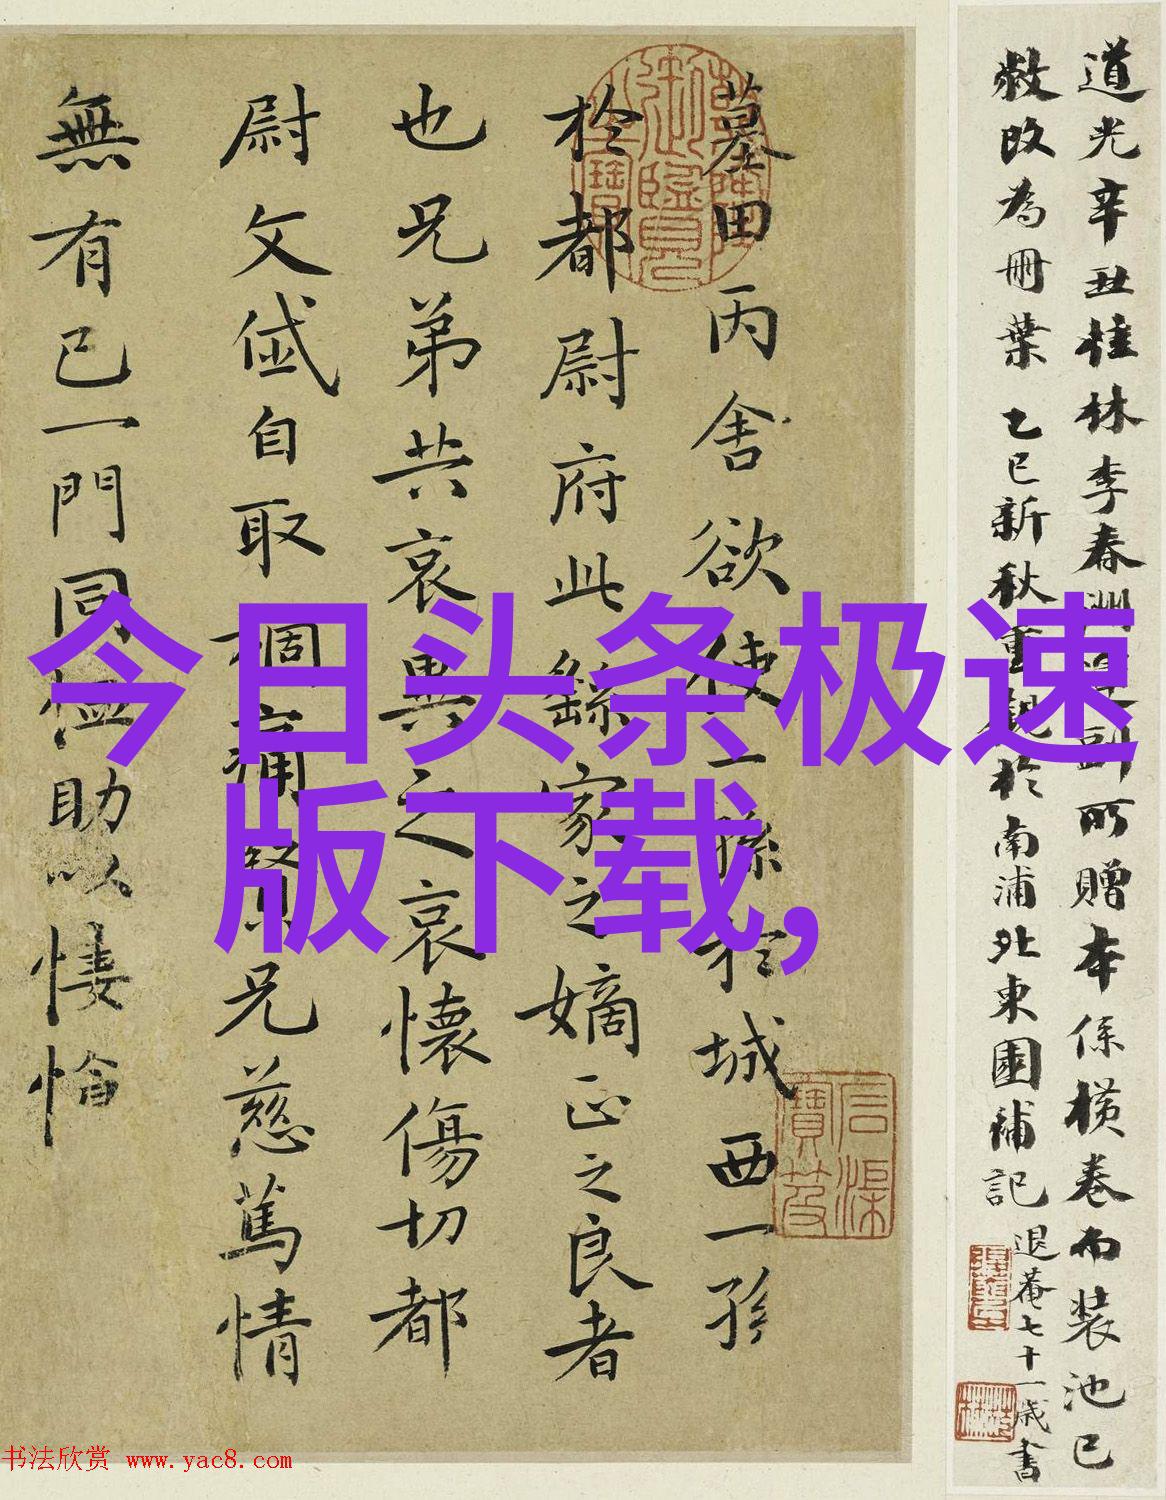 墓田丙舍欲使一孫於城西一孫
於都尉府此繇家之嫡正之良者
也兄弟共哀異之哀懷傷切都
尉文岱自取禍痛賢兄慈篤情
無有已一門同恤助以悽愴
道光辛丑桂林李春洲觀副所贈本係橫卷而装池已
敝改為冊葉乙巳新秋重觀於南浦北東園補記
退菴七十一歲書
今日头条极速
版下载,
书法欣赏 www.yac8.com